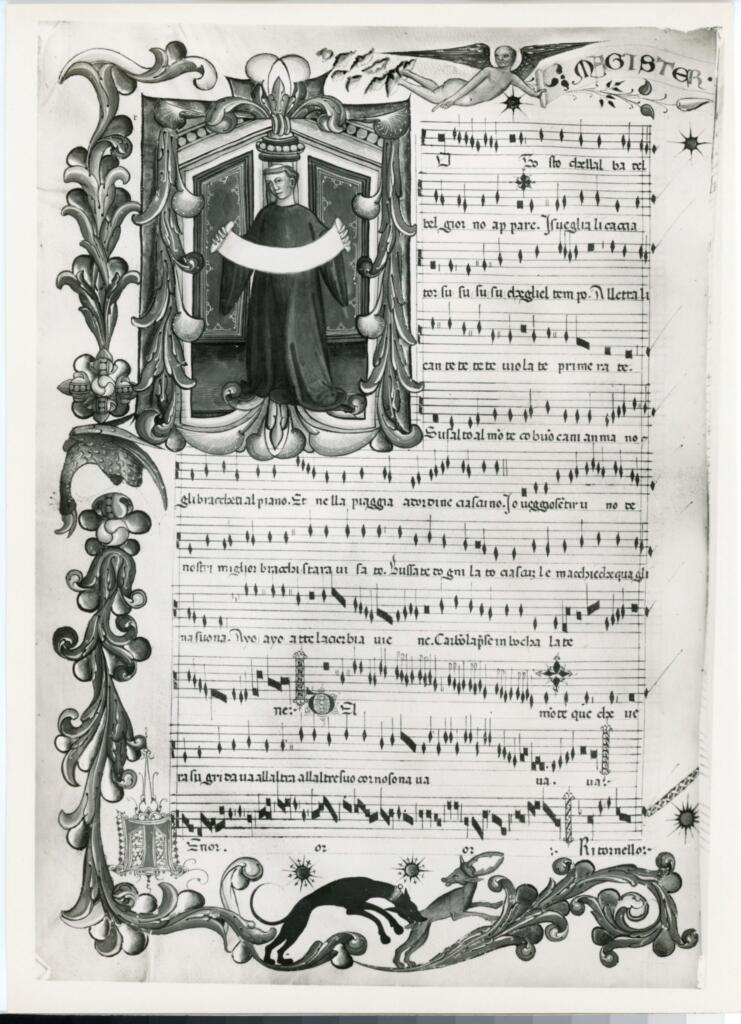 MAGISTER
O Ho sto chellal ba del
bel gior no ap pare. Isueglia li caccia
tor su su su su chegliel tem po. Alletta li
can te te te te uiola te prime ra te.
Susalto al mõte cõ buõ cani an ma no
gli bracchetti al piano. Et nella piaggia adordine ciascuno. Io ueggiosẽtir u no de
nostri miglior bracchi stara ui sa to. Bussate do gni la to ciascũ le macchie che quagli
na suona. Ayo ayo a tte la cierbia uie ne. Carbõ lap̃se in bocha la te
ne:- El mõte que che ue
ra su gri da ua allaltra allaltre suo cor no sona ua ua. ua:-
Enor. or or :- Ritornello:-